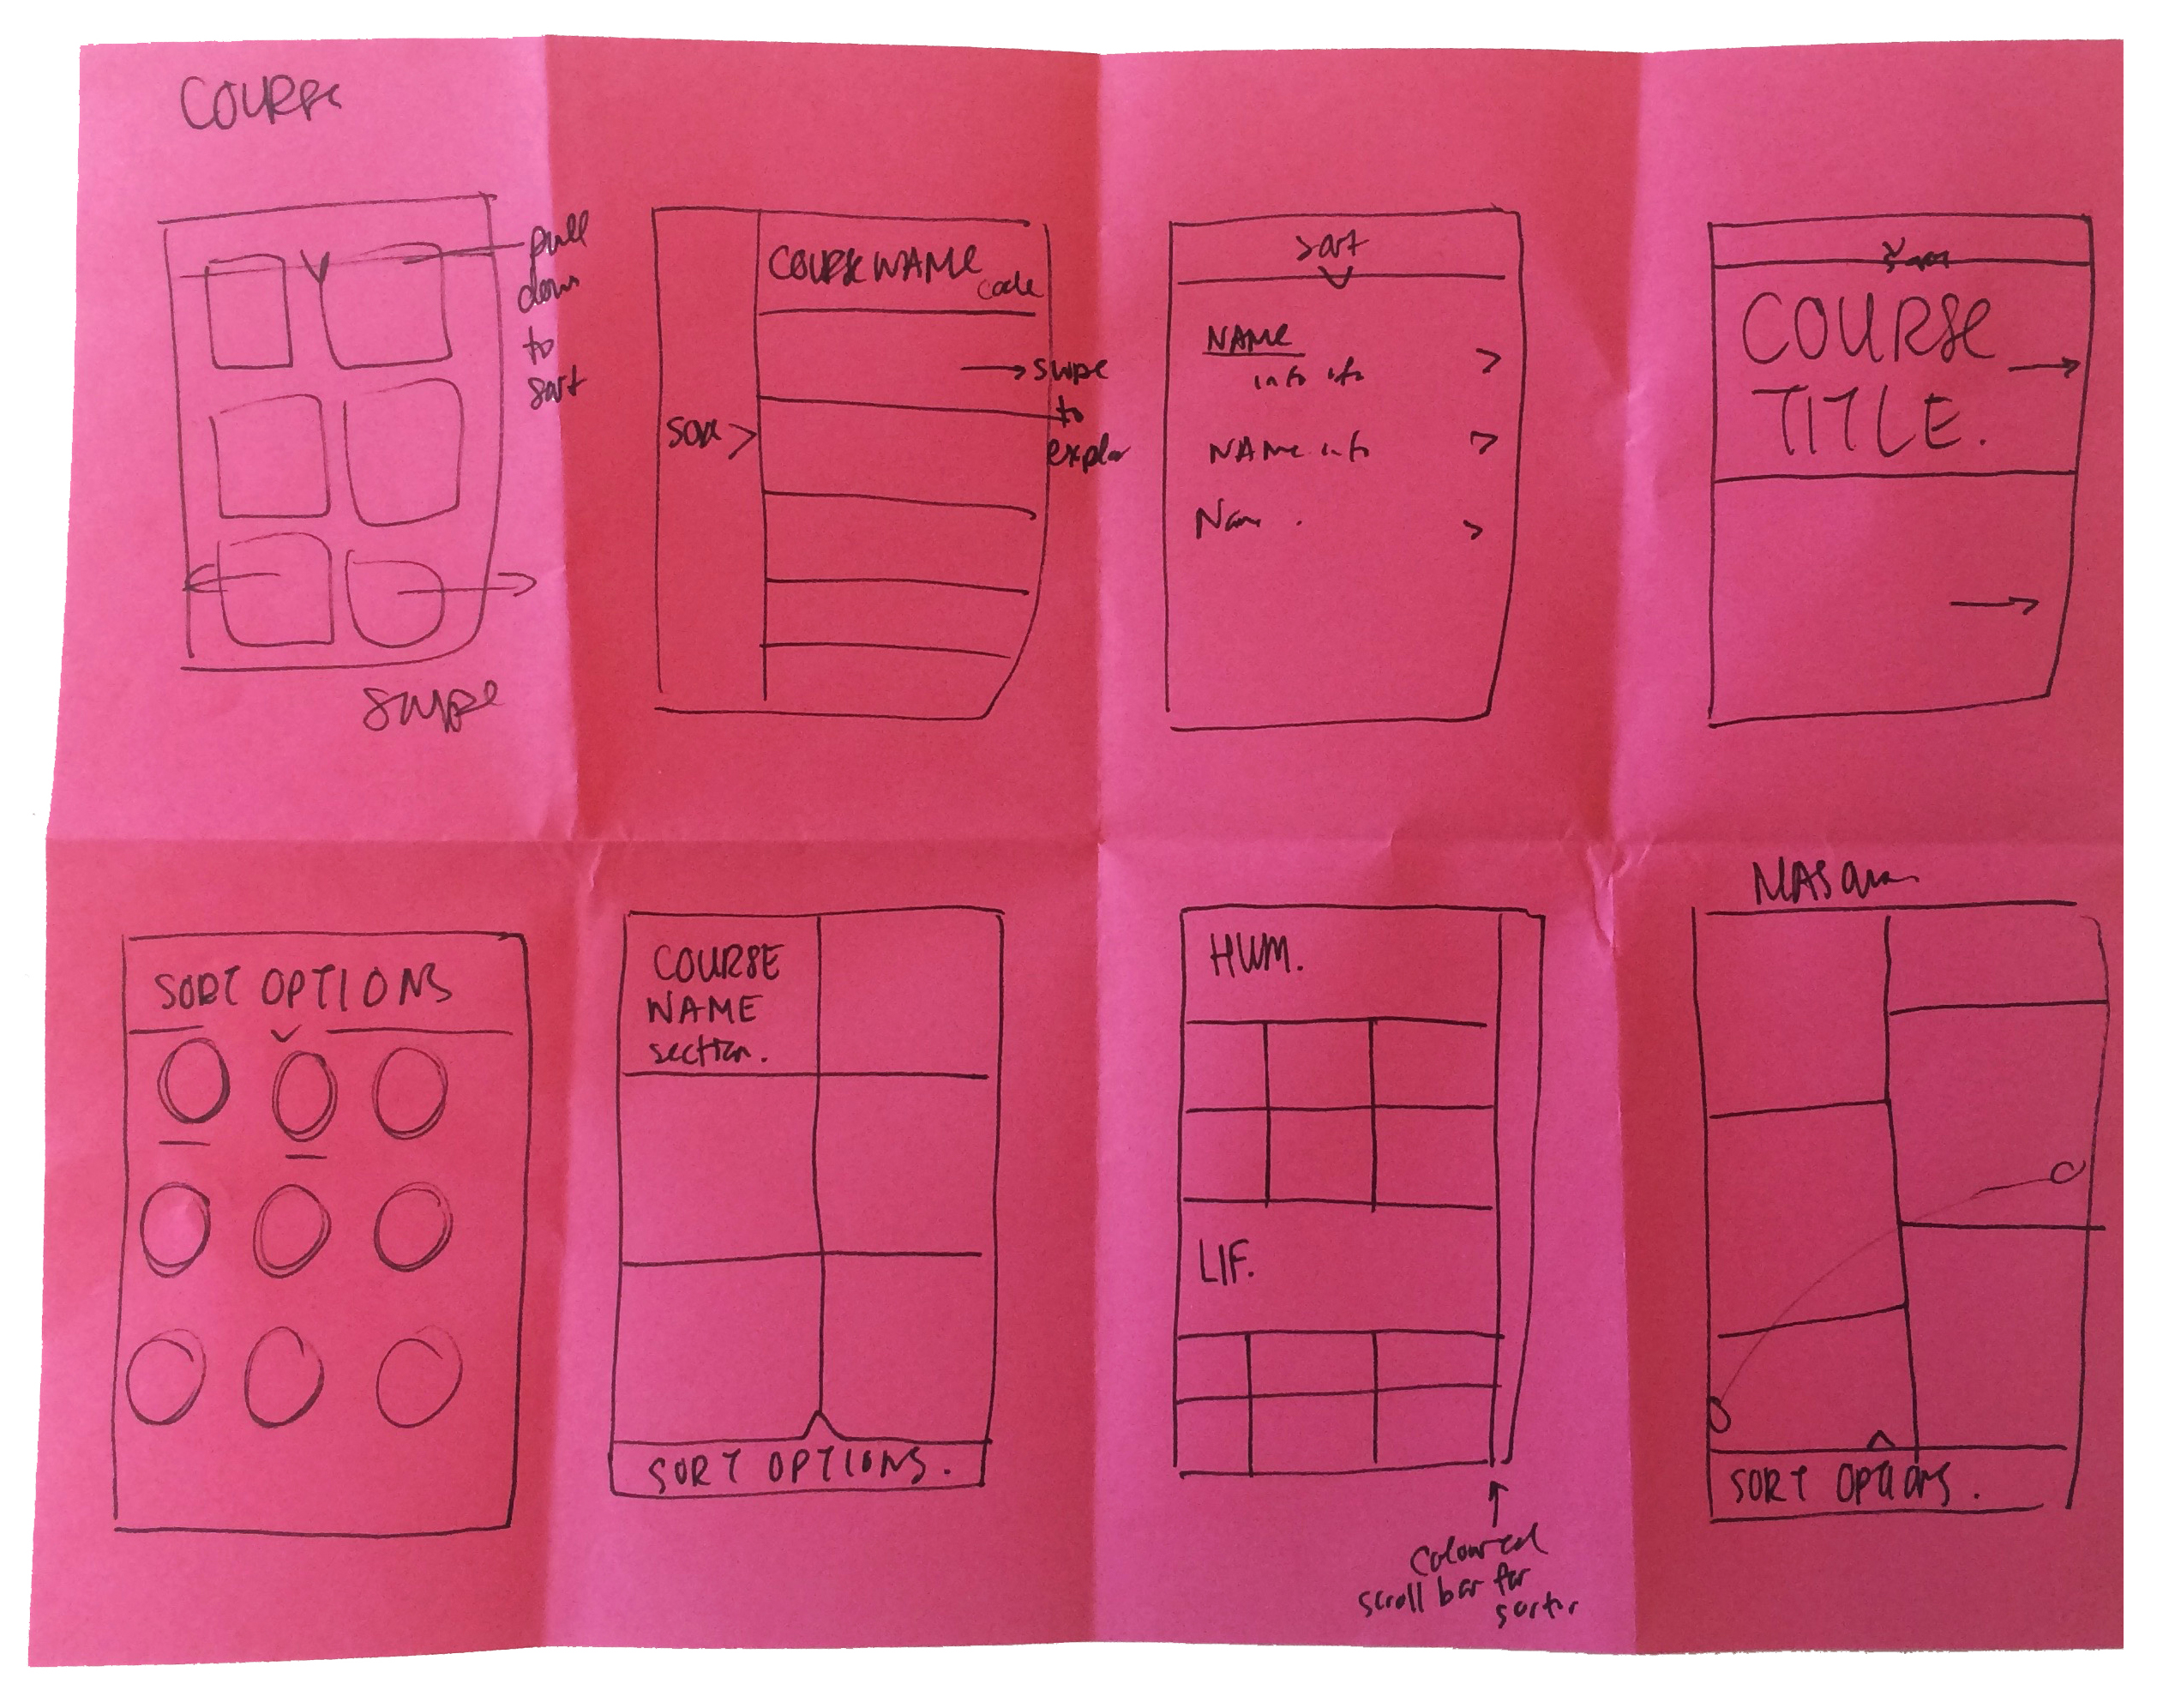 COURSE
pull
down
to
sort
swipe
COURSE NAME
code
swipe
to
SORT >
sort
NAME
info info
>
NAME info
>
>
COURSE
TITLE.
SORT OPTIONS
COURSE
NAME
section.
SORT OPTIONS.
HUM.
LIF.
coloured
scroll bar for
SORT OPTIONS.